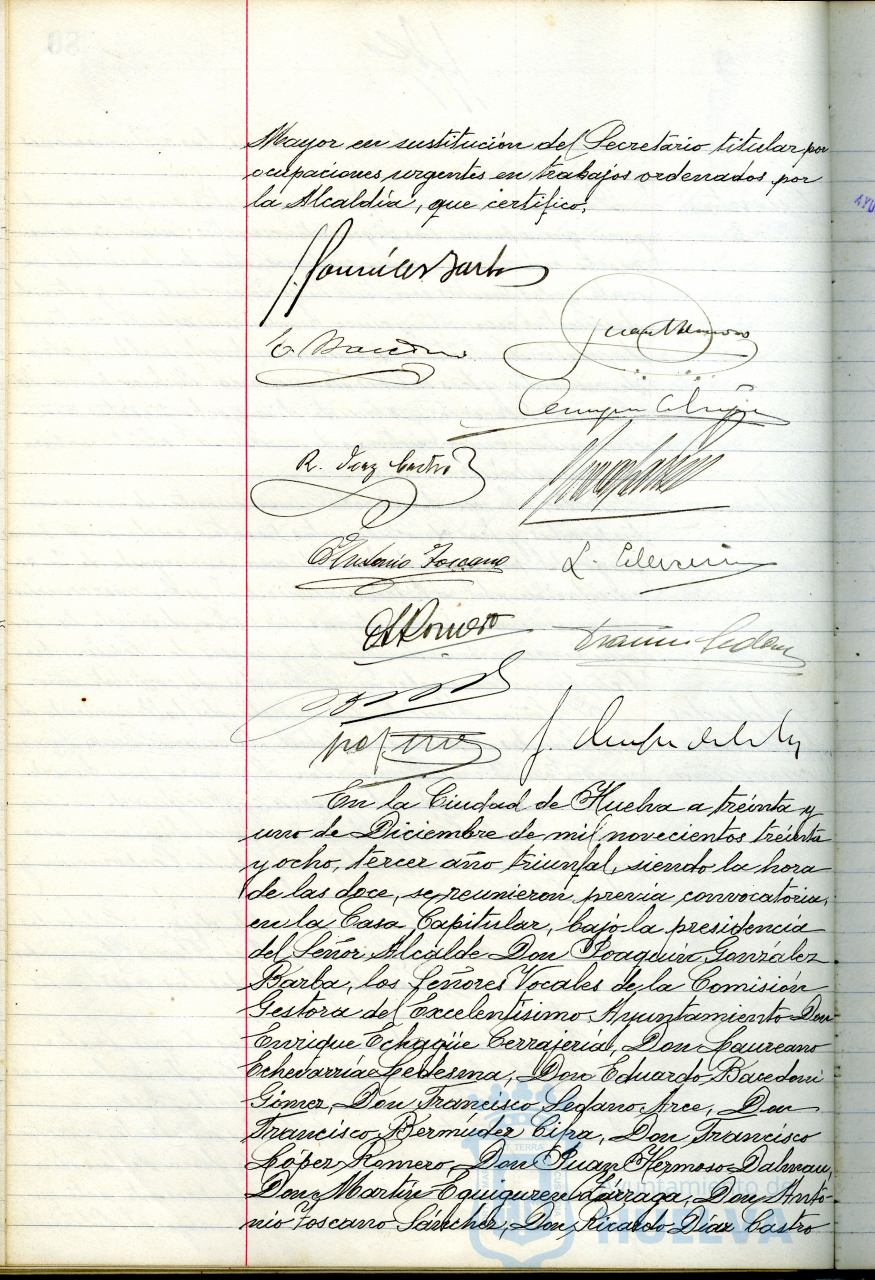 Mayor en sustitución del Secretario titular por
ocupaciones urgentes en trabajos ordenados por
la Alcaldía, que certifico.
R. Díaz Castro
Antonio Toscano
En la Ciudad de Huelva a treinta y
uno de Diciembre de mil novecientos treinta
y ocho, tercer año triunfal, siendo la hora
de las doce, se reunieron previa convocatoria,
en la Casa Capitular, bajo la presidencia
del Señor Alcalde Don Joaquín González
Barba, los Señores Vocales de la Comisión
Gestora del Excelentísimo Ayuntamiento Don
Enrique Echagüe Cerrajería, Don Laureano
Echevarría Ledesma, Don Eduardo Bacedoni
Gómez, Don Francisco Sedano Arce, Don
Francisco Bermúdez Cipa, Don Francisco
López Romero, Don Juan Hermoso Dalmau,
Don Martín Eguiguren Lárraga, Don Anto-
nio Toscano Sánchez, Don Ricardo Díaz Castro
Ayuntamiento de
HUELVA